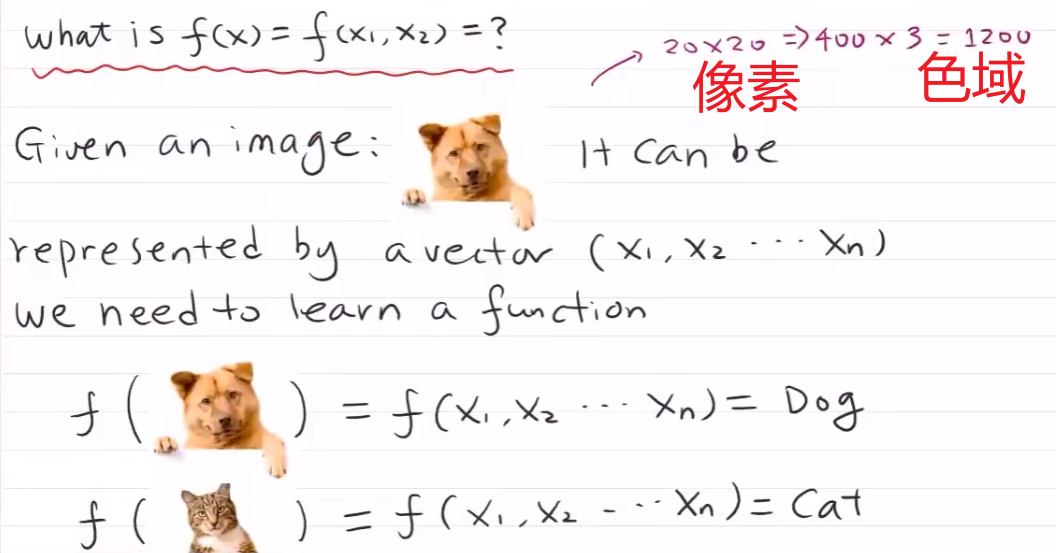 what is f(x) = f(x₁, x₂) = ?
20×20 ⇒ 400 × 3 = 1200
像素 色域
Given an image: It can be
represented by a vector (x₁, x₂ ··· xₙ)
we need to learn a function
f ( ) = f(x₁, x₂ ··· xₙ) = Dog
f ( ) = f(x₁, x₂ - ·· xₙ) = Cat